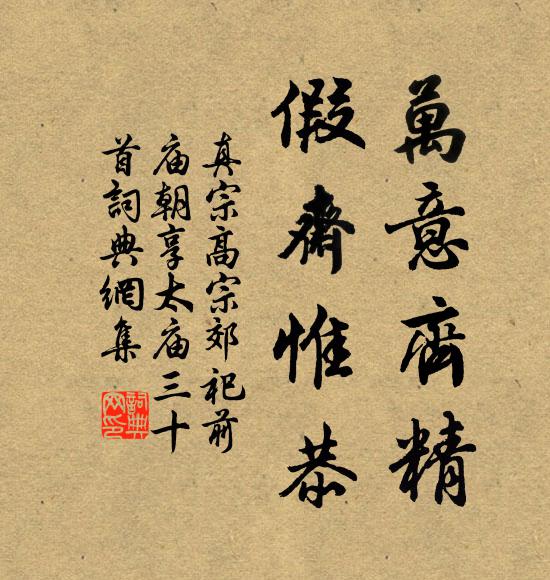 萬意齊精
假齋惟恭
真宗高宗郊祀前
庙朝享太庙三十
首詞典網集
詞典網印